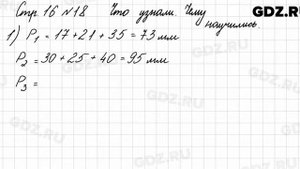 Стр. 16 №18. Что узнали. Чему
научились.
1) P₁ = 17 + 21 + 35 = 73 мм
P₂ = 30 + 25 + 40 = 95 мм
P₃ =
GDZ.RU